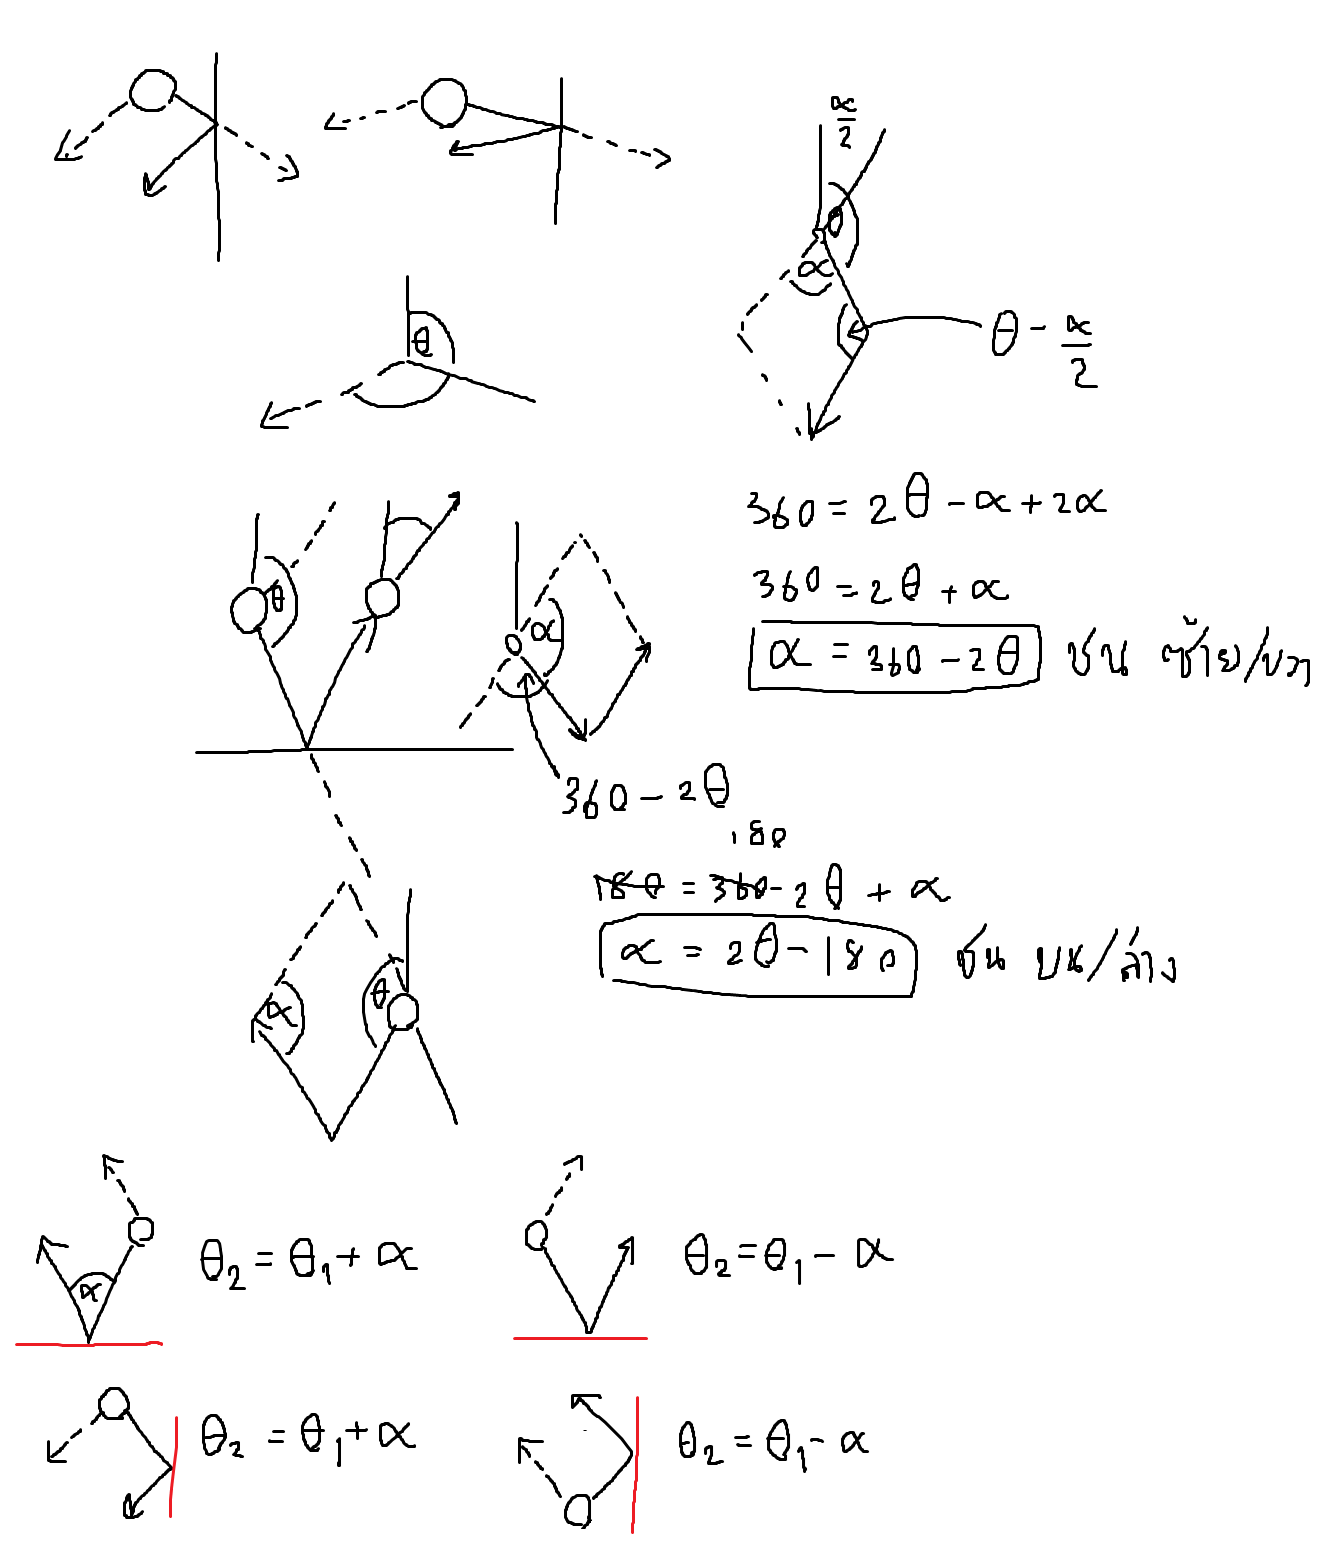 α/2
θ
α
θ - α/2
θ
360 = 2θ - α + 2α
360 = 2θ + α
α = 360 - 2θ ชน ซ้าย/ขวา
θ
α
360 - 2θ
180
180 = 360 - 2θ + α
α = 2θ - 180 ชน บน/ล่าง
θ
α
α
θ₂ = θ₁ + α
θ₂ = θ₁ - α
θ₂ = θ₁ + α
θ₂ = θ₁ - α